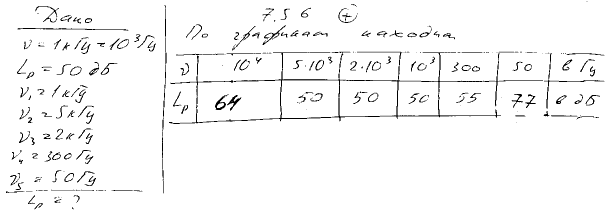 Дано
ν = 1 кГц = 10³ Гц
Lp = 50 дБ
ν₁ = 1 кГц
ν₂ = 5 кГц
ν₃ = 2 кГц
ν₄ = 300 Гц
ν₅ = 50 Гц
Lp = ?
7.56 +
По графикам находим
ν 10⁴ 5·10³ 2·10³ 10³ 300 50 в Гц
Lp 64 50 50 50 55 77 в дБ